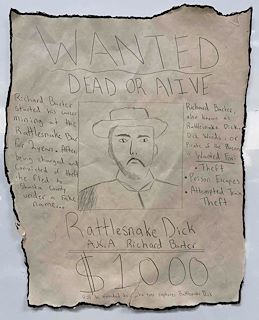 WANTED
DEAD OR ALIVE
Richard Barter
started his career
mining at the
Rattlesnake Bar
for 2 years. After
being charged and
convicted of theft
he fled
Shasta County
under a fake
name...
Richard Barter,
also known as
Rattlesnake Dick,
Dick Woods, or
Pirate of the Placers
is Wanted For:
• Theft
• Prison Escapes
• Attempted Train
Theft
Rattlesnake Dick
A.K.A Richard Barter
$1000
will be rewarded to who ever captures Rattlesnake Dick